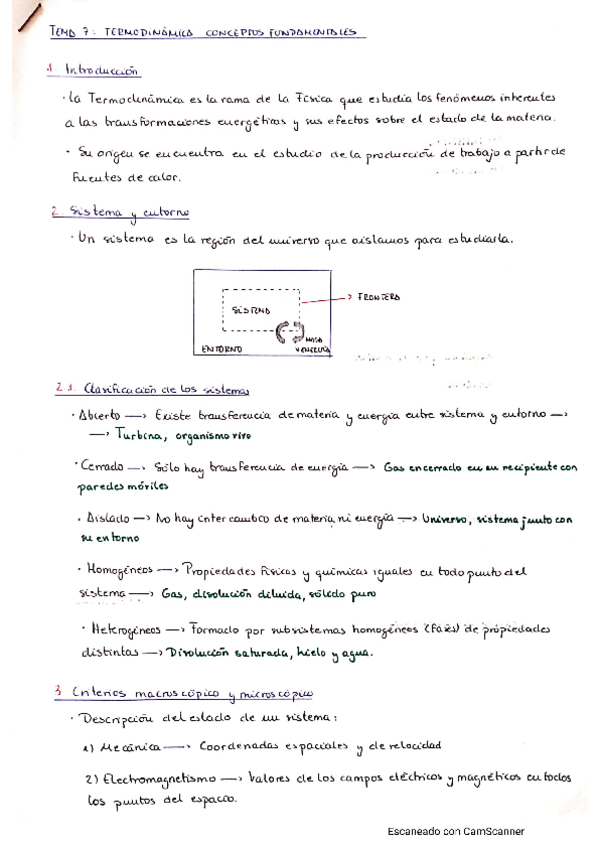 TEMA 7: TERMODINÁMICA CONCEPTOS FUNDAMENTALES
1. Introducción
· La Termodinámica es la rama de la Física que estudia los fenómenos inherentes
a las transformaciones energéticas y sus efectos sobre el estado de la materia.
· Su origen se encuentra en el estudio de la producción de trabajo a partir de
fuentes de calor.
2. Sistema y entorno
· Un sistema es la región del universo que aislamos para estudiarla.
FRONTERA
SISTEMA
MASA
ENTORNO
Y ENERGÍA
2.1. Clasificación de los sistemas
· Abierto → Existe transferencia de materia y energía entre sistema y entorno →
→ Turbina, organismo vivo
· Cerrado → Sólo hay transferencia de energía → Gas encerrado en un recipiente con
paredes móviles
· Aislado → No hay intercambio de materia ni energía → Universo, sistema junto con
su entorno
· Homogéneos → Propiedades físicas y químicas iguales en todo punto del
sistema → Gas, disolución diluida, sólido puro
· Heterogéneos → Formado por subsistemas homogéneos (fases) de propiedades
distintas → Disolución saturada, hielo y agua.
3 Criterios macroscópico y microscópico
· Descripción del estado de un sistema:
1) Mecánica → Coordenadas espaciales y de velocidad
2) Electromagnetismo → Valores de los campos eléctricos y magnéticos en todos
los puntos del espacio.
Escaneado con CamScanner